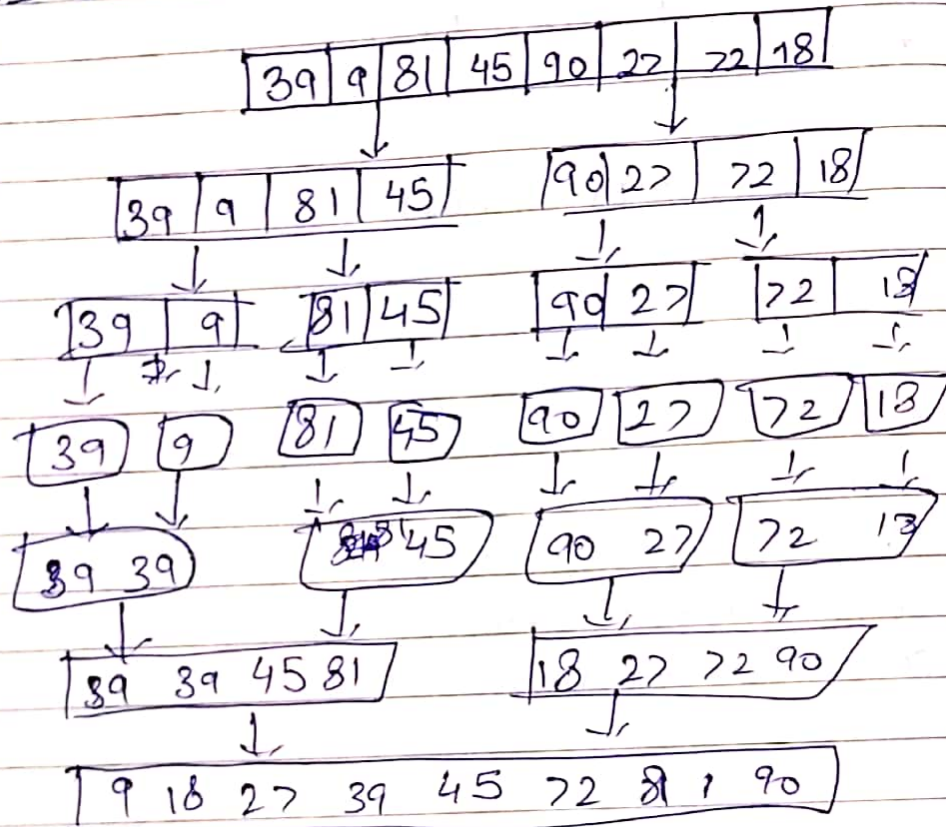 39 9 81 45 90 27 72 18
39 9 81 45 90 27 72 18
39 9 81 45 90 27 72 18
39 9 81 45 90 27 72 18
39 39 45 90 27 72 18
39 39 45 81 18 27 72 90
9 18 27 39 45 72 81 90